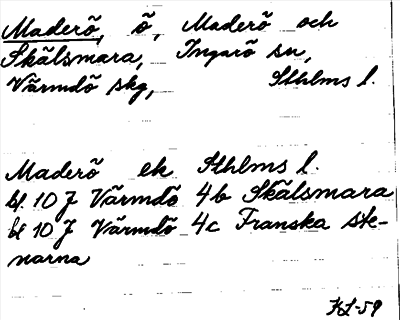 Maderö, ö, Maderö och
Skälsmara, Ingarö sn,
Värmdö skg, Sthlms l.
Maderö ek Sthlms l.
bl. 10 J Värmdö 4b Skälsmara
bl 10 J Värmdö 4c Franska ste-
narna
KL-59